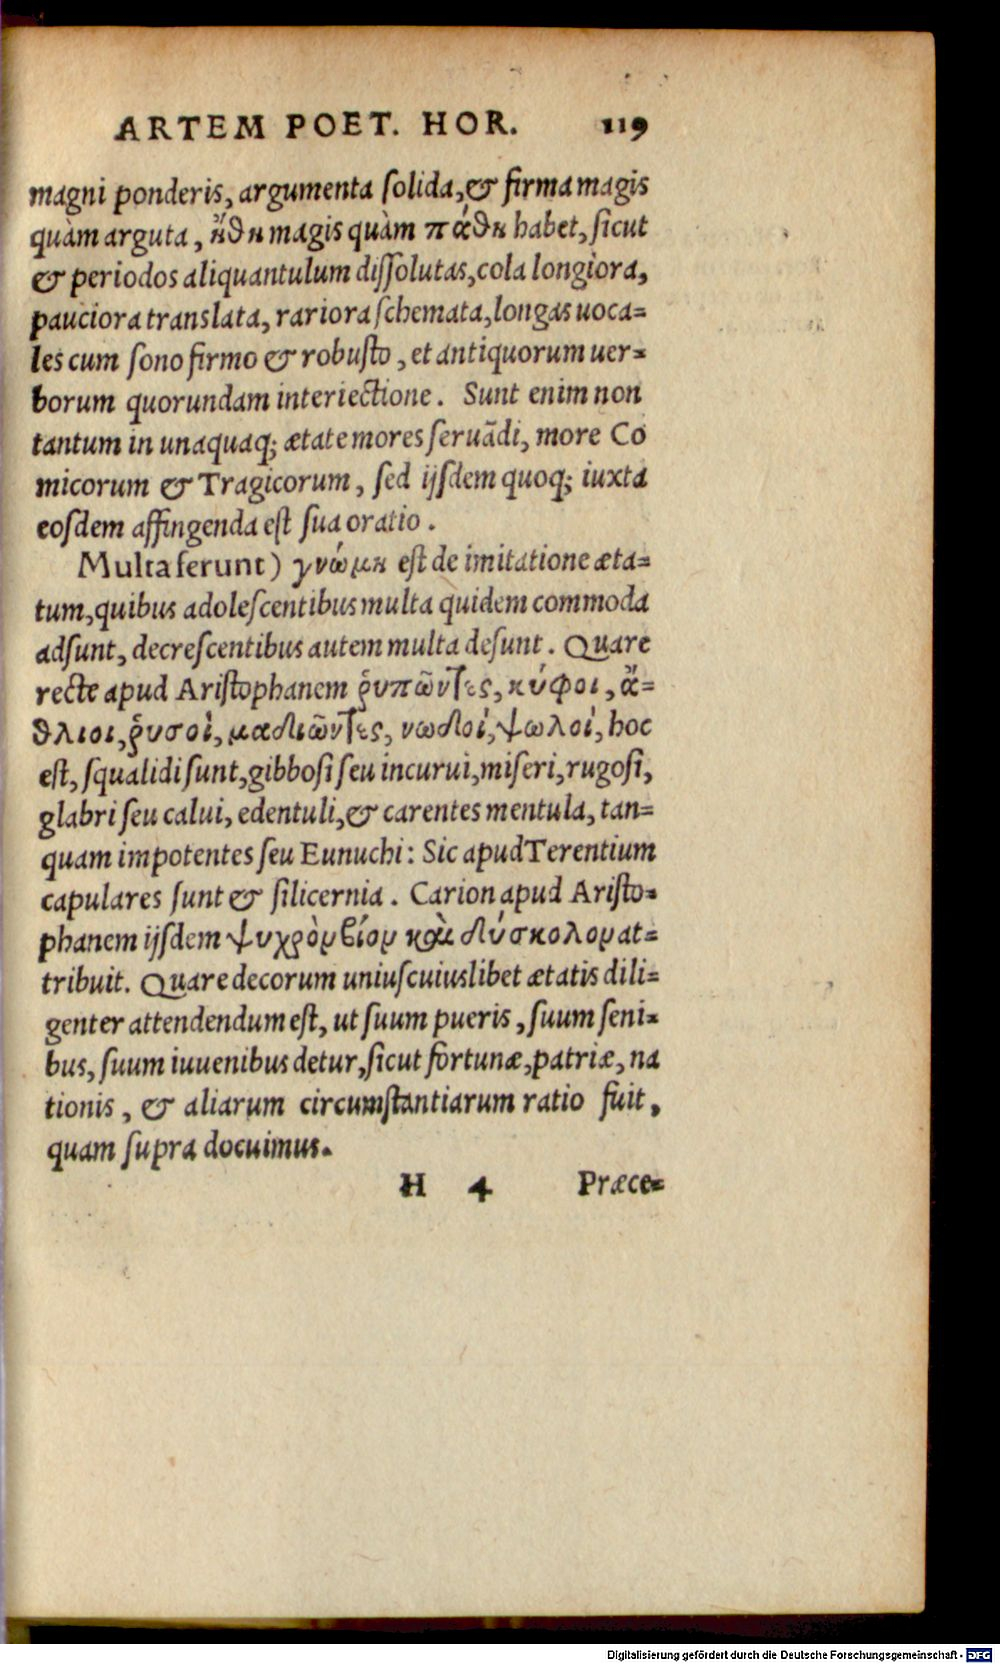 ARTEM POET. HOR. 119
magni ponderis, argumenta ſolida,& firma magis
quàm arguta, ἤθη magis quàm πάθη habet, ſicut
& periodos aliquantulum diſſolutas, cola longiora,
pauciora translata, rariora ſchemata, longas uoca-
les cum ſono firmo & robuſto, et antiquorum uer-
borum quorundam interiectione. Sunt enim non
tantum in unaquaq; ætate mores ſeruãdi, more Co
micorum & Tragicorum, ſed ijſdem quoq; iuxta
eoſdem affingenda eſt ſua oratio.
Multa ferunt) γνώμη eſt de imitatione æta-
tum, quibus adoleſcentibus multa quidem commoda
adſunt, decreſcentibus autem multa deſunt. Quare
recte apud Ariſtophanem ῥυπῶντες, κύφοι, ἄ-
θλιοι, ῥυσοὶ, μαδιῶντες, νωδοί, ψωλοί, hoc
eſt, ſqualidi ſunt, gibboſi ſeu incurui, miſeri, rugoſi,
glabri ſeu calui, edentuli, & carentes mentula, tan-
quam impotentes ſeu Eunuchi: Sic apud Terentium
capulares ſunt & ſilicernia. Carion apud Ariſto-
phanem ijſdem ψυχρὸν βίον καὶ δύσκολον at-
tribuit. Quare decorum uniuſcuiuslibet ætatis dili-
genter attendendum eſt, ut ſuum pueris, ſuum ſeni-
bus, ſuum iuuenibus detur, ſicut fortunæ, patriæ, na
tionis, & aliarum circumſtantiarum ratio fuit,
quam ſupra docuimus.
H 4 Præce-
Digitalisierung gefördert durch die Deutsche Forschungsgemeinschaft - DFG